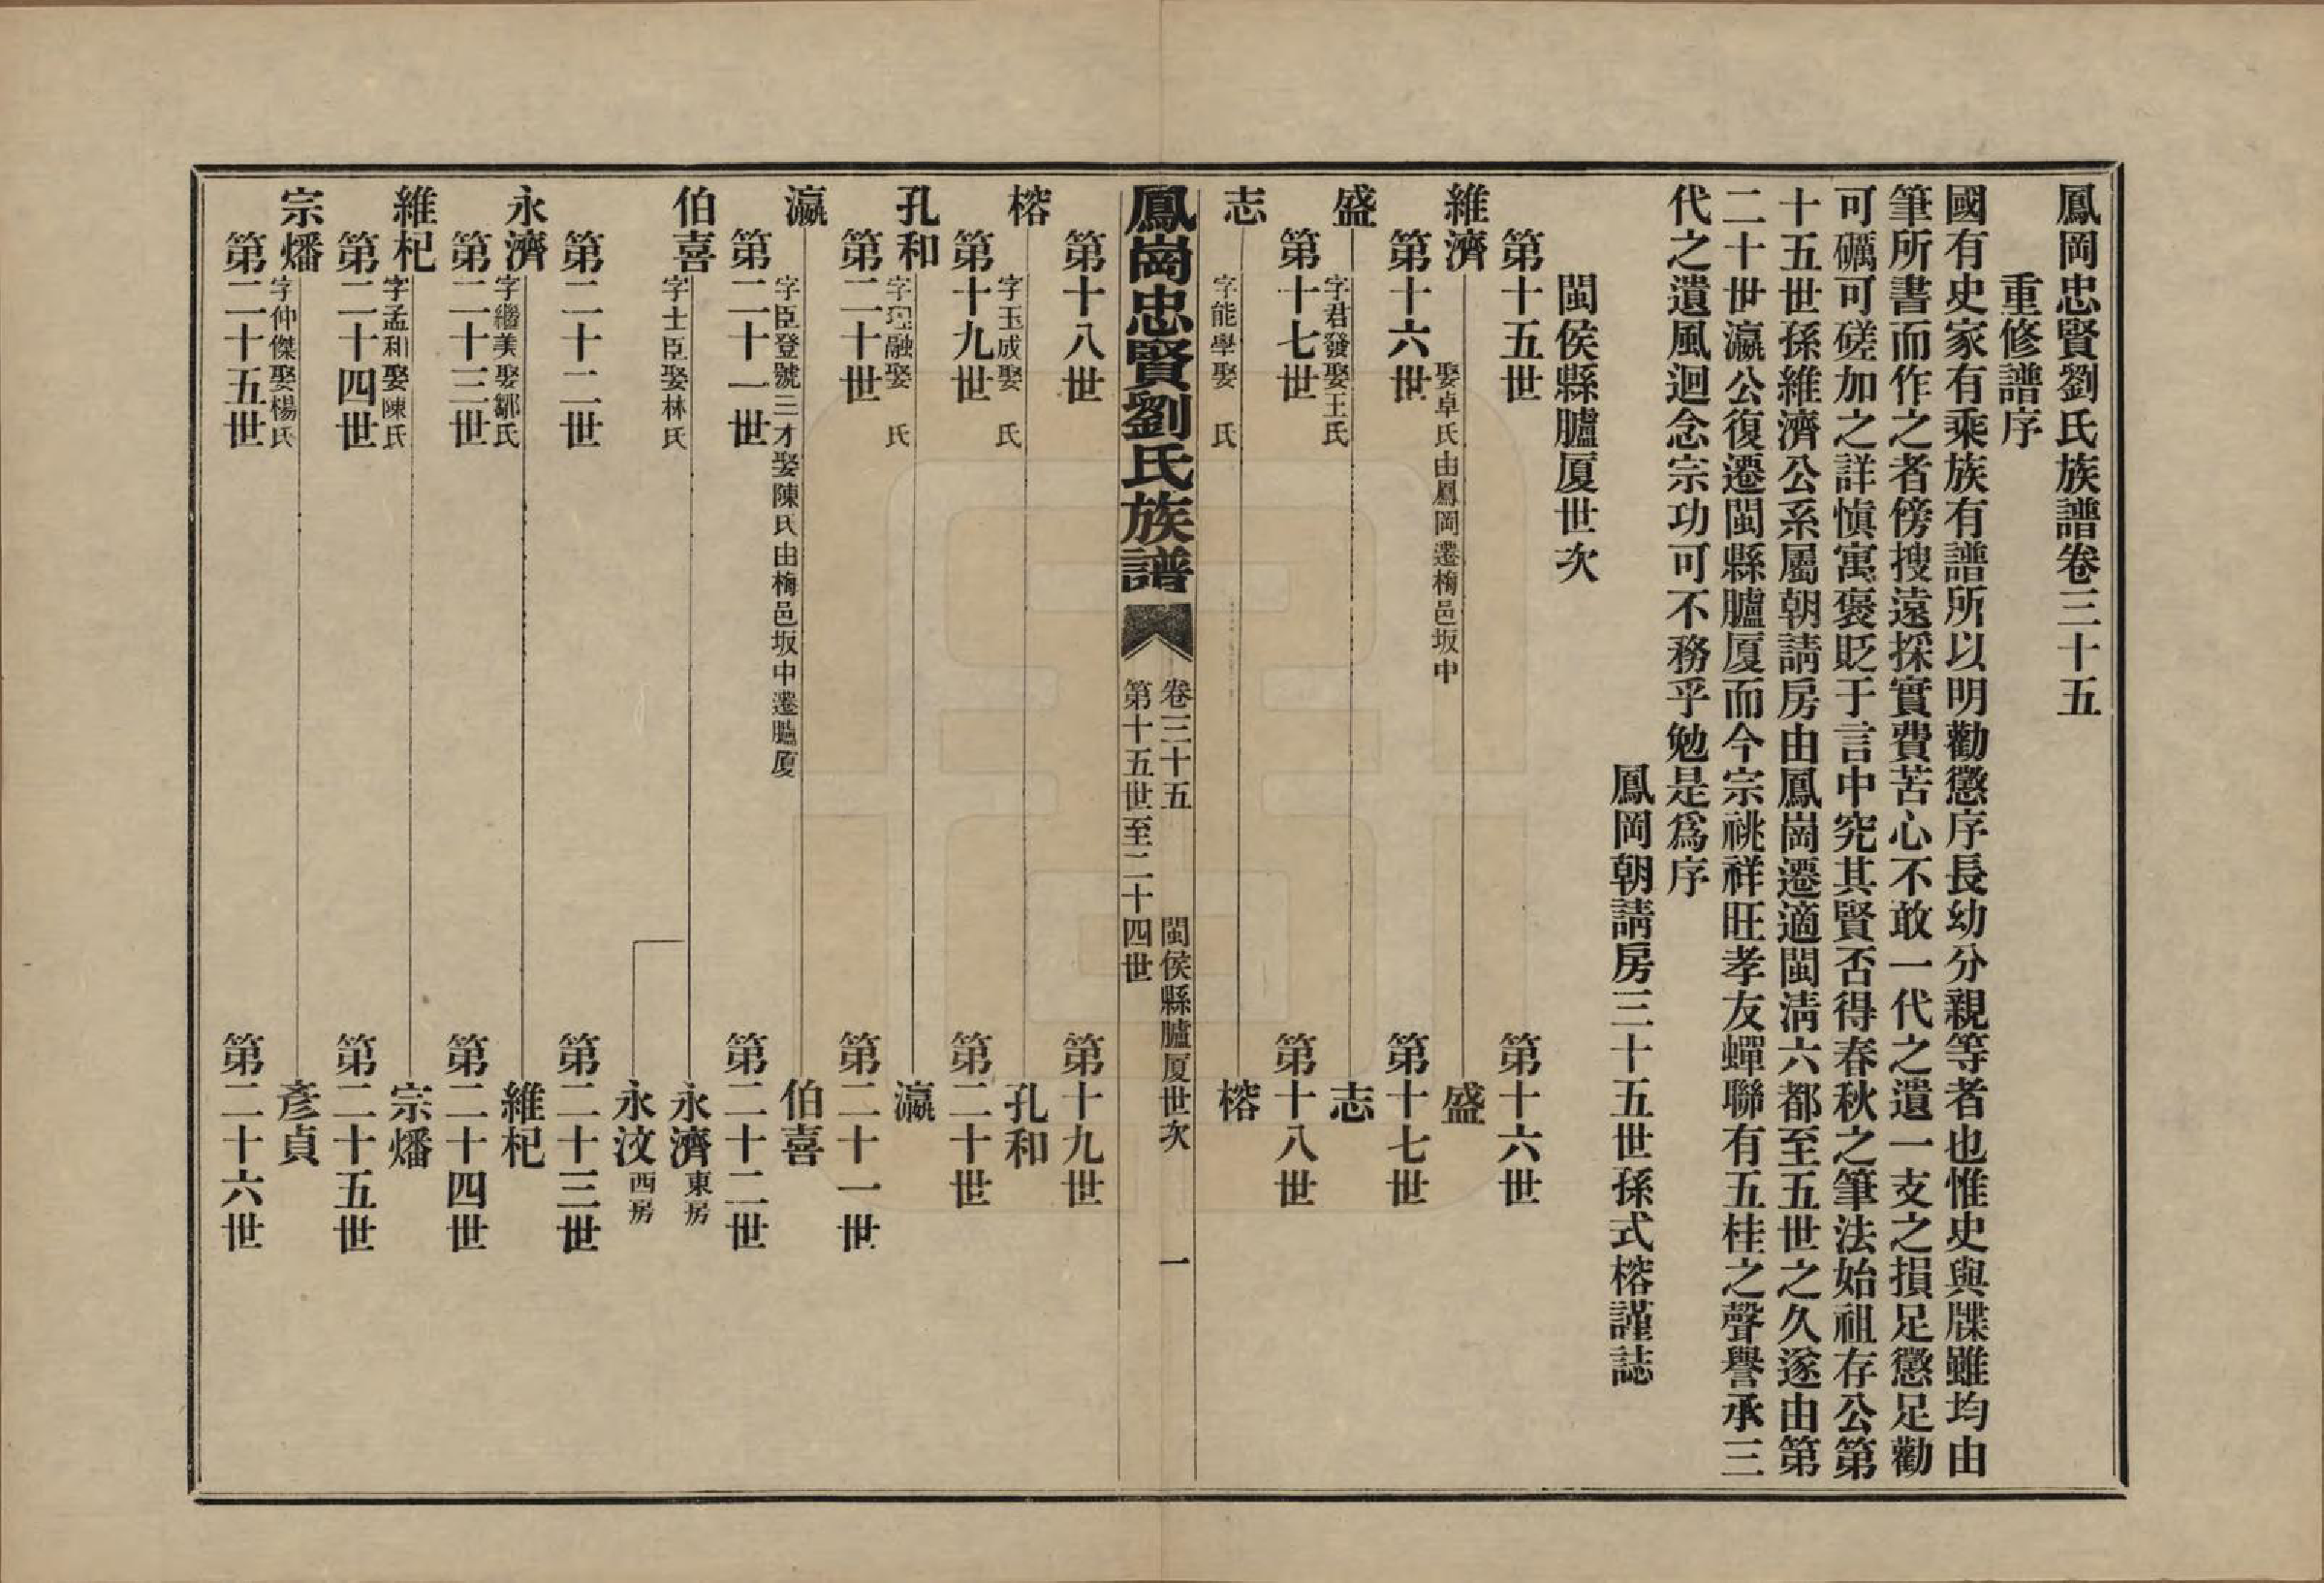 鳳岡忠賢劉氏族譜卷三十五
重修譜序
國有史家有乘族有譜所以明勸懲序長幼分親等者也惟史與牒雖均由
筆所書而作之者傍搜遠採實費苦心不敢一代之遺一支之損足懲足勸
可礪可磋加之詳慎寓褒貶于言中究其賢否得春秋之筆法始祖存公第
十五世孫維濟公系屬朝請房由鳳崗遷適閩淸六都至五世之久遂由第
二十世瀛公復遷閩縣臚厦而今宗祧祥旺孝友蟬聯有五桂之聲譽承三
代之遺風迴念宗功可不務乎勉是爲序
鳳岡朝請房三十五世孫式榕謹誌
閩侯縣臚厦世次
第十五世 第十六世
維濟 娶卓氏由鳳岡遷梅邑坂中 盛
第十六世 第十七世
盛 字君發娶王氏 志
第十七世 第十八世
志 字能學娶 氏 榕
鳳崗忠賢劉氏族譜 卷三十五 閩侯縣臚厦世次 一
第十五世至二十四世
第十八世 第十九世
榕 字玉成娶 氏 孔和
第十九世 第二十世
孔和 字珵融娶 氏 瀛
第二十世 第二十一世
瀛 字臣登號三才娶陳氏由梅邑坂中遷臚厦 伯喜
第二十一世 第二十二世
伯喜 字士臣娶林氏 永濟東房
永汶西房
第二十二世 第二十三世
永濟 字繼美娶鄒氏 維杞
第二十三世 第二十四世
維杞 字孟和娶陳氏 宗燔
第二十四世 第二十五世
宗燔 字仲傑娶楊氏 彥貞
第二十五世 第二十六世